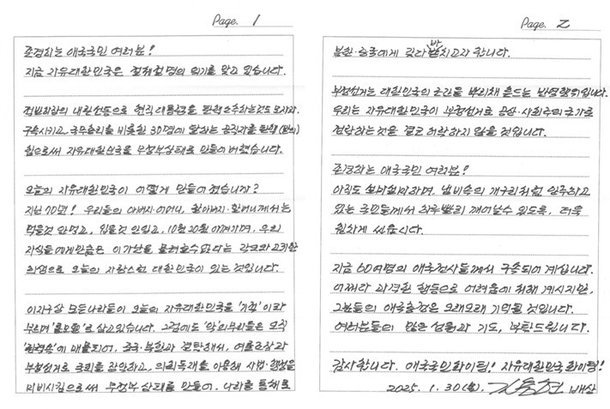 Page. 1
존경하는 애국국민 여러분!
지금 자유대한민국은 절체절명의 위기를 맞고 있습니다.
거대야당의 내란선동으로 현직 대통령을 탄핵소추하는것도 모자라
구속시키고, 국무총리를 비롯한 30명에 달하는 공직자를 탄핵
함으로써 자유대한민국을 무정부상태로 만들어 버렸습니다.
오늘의 자유대한민국이 어떻게 만들어 졌습니까?
지난 70년! 우리들의 아버지·어머니, 할아버지·할머니께서는
먹을것 안먹고, 입을것 안입고,
자식들에게만큼은 이 가난을 물려줄수 없다는 각오와 고귀한
희생으로 오늘의 자랑스런 대한민국이 있는 것입니다.
이 지구상 모든나라들이 오늘의 자유대한민국을 '기적'이라
부르며 '롤모델'로 삼고있습니다. 그럼에도 '악'의 무리들은 오직
에 매몰되어, 중국·북한과 결탁해서, 여론조작과
부정선거로 국회를 장악하고, 의회독재를 이용해 사법·행정을
마비시킴으로써 무정부 상태를 만들어, 나라를 통째로
Page. 2
북한·중국에게 갖다 바치고자 합니다.
부정선거는 대한민국의 근간을 뿌리채 흔드는 반역행위입니다.
우리는 자유대한민국이 부정선거로 공산·사회주의 국가로
전락하는 것을 결코 허락하지 않을 것입니다.
존경하는 애국국민 여러분!
아직도 냄비속의 개구리처럼 안주하고
있는 국민들께서 하루빨리 깨어날수 있도록, 더욱
힘차게 싸웁시다.
지금 60여명의 애국전사들께서 구속되어 계십니다.
어쩌다 과격한 행동으로 어려움에 처해 계시지만,
그분들의 애국충정은 오래오래 기억될 것입니다.
여러분들의 많은 성원과 기도, 부탁드립니다.
감사합니다. 애국국민 화이팅! 자유대한민국 화이팅!
2025. 1. 30(목). 김용현 배상